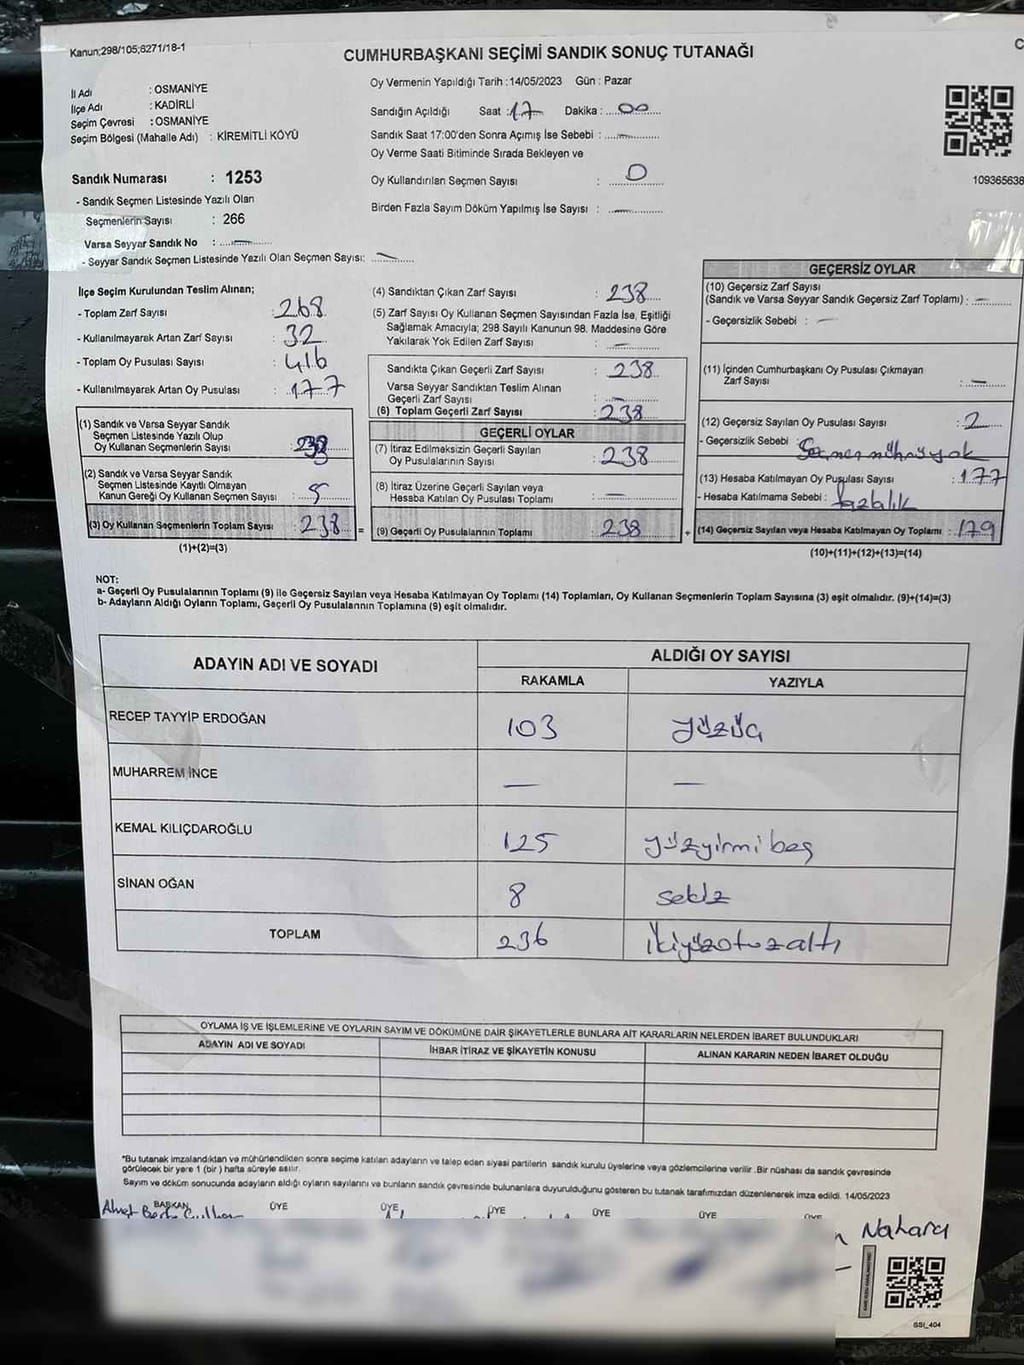 Kanun;298/105;6271/18-1
CUMHURBAŞKANI SEÇİMİ SANDIK SONUÇ TUTANAĞI
İl Adı : OSMANİYE
İlçe Adı : KADİRLİ
Seçim Çevresi : OSMANİYE
Seçim Bölgesi (Mahalle Adı) : KİREMİTLİ KÖYÜ
Sandık Numarası : 1253
- Sandık Seçmen Listesinde Yazılı Olan
Seçmenlerin Sayısı : 266
Varsa Seyyar Sandık No : —
- Seyyar Sandık Seçmen Listesinde Yazılı Olan Seçmen Sayısı: —
Oy Vermenin Yapıldığı Tarih : 14/05/2023 Gün : Pazar
Sandığın Açıldığı Saat : 17 Dakika : 00
Sandık Saat 17:00'den Sonra Açımış İse Sebebi : —
Oy Verme Saati Bitiminde Sırada Bekleyen ve
Oy Kullandırılan Seçmen Sayısı : 0
Birden Fazla Sayım Döküm Yapılmış İse Sayısı : —
109365638
İlçe Seçim Kurulundan Teslim Alınan;
- Toplam Zarf Sayısı : 268
- Kullanılmayarak Artan Zarf Sayısı : 32
- Toplam Oy Pusulası Sayısı : 416
- Kullanılmayarak Artan Oy Pusulası : 177
(1) Sandık ve Varsa Seyyar Sandık
Seçmen Listesinde Yazılı Olup
Oy Kullanan Seçmenlerin Sayısı :
(2) Sandık ve Varsa Seyyar Sandık
Seçmen Listesinde Kayıtlı Olmayan
Kanun Gereği Oy Kullanan Seçmen Sayısı : 5
(3) Oy Kullanan Seçmenlerin Toplam Sayısı : 238 =
(1)+(2)=(3)
(4) Sandıktan Çıkan Zarf Sayısı : 238
(5) Zarf Sayısı Oy Kullanan Seçmen Sayısından Fazla İse, Eşitliği
Sağlamak Amacıyla; 298 Sayılı Kanunun 98. Maddesine Göre
Yakılarak Yok Edilen Zarf Sayısı : —
Sandıkta Çıkan Geçerli Zarf Sayısı : 238
Varsa Seyyar Sandıktan Teslim Alınan
Geçerli Zarf Sayısı : —
(6) Toplam Geçerli Zarf Sayısı : 238
GEÇERLİ OYLAR
(7) İtiraz Edilmeksizin Geçerli Sayılan
Oy Pusulalarının Sayısı : 238
(8) İtiraz Üzerine Geçerli Sayılan veya
Hesaba Katılan Oy Pusulası Toplamı : —
(9) Geçerli Oy Pusulalarının Toplamı : 238 +
GEÇERSİZ OYLAR
(10) Geçersiz Zarf Sayısı
(Sandık ve Varsa Seyyar Sandık Geçersiz Zarf Toplamı) : —
- Geçersizlik Sebebi : —
(11) İçinden Cumhurbaşkanı Oy Pusulası Çıkmayan
Zarf Sayısı : —
(12) Geçersiz Sayılan Oy Pusulası Sayısı : 2
- Geçersizlik Sebebi : Seçmen mührü yok
(13) Hesaba Katılmayan Oy Pusulası Sayısı : 177
- Hesaba Katılmama Sebebi : fazlalık
(14) Geçersiz Sayılan veya Hesaba Katılmayan Oy Toplamı : 179
(10)+(11)+(12)+(13)=(14)
NOT:
a- Geçerli Oy Pusulalarının Toplamı (9) ile Geçersiz Sayılan veya Hesaba Katılmayan Oy Toplamı (14) Toplamları, Oy Kullanan Seçmenlerin Toplam Sayısına (3) eşit olmalıdır. (9)+(14)=(3)
b- Adayların Aldığı Oyların Toplamı, Geçerli Oy Pusulalarının Toplamına (9) eşit olmalıdır.
ADAYIN ADI VE SOYADI
ALDIĞI OY SAYISI
RAKAMLA YAZIYLA
RECEP TAYYİP ERDOĞAN 103 yüzüç
MUHARREM İNCE — —
KEMAL KILIÇDAROĞLU 125 yüzyirmibeş
SİNAN OĞAN 8 sekiz
TOPLAM 236 ikiyüzotuzaltı
OYLAMA İŞ VE İŞLEMLERİNE VE OYLARIN SAYIM VE DÖKÜMÜNE DAİR ŞİKAYETLERLE BUNLARA AİT KARARLARIN NELERDEN İBARET BULUNDUKLARI
ADAYIN ADI VE SOYADI İHBAR İTİRAZ VE ŞİKAYETİN KONUSU ALINAN KARARIN NEDEN İBARET OLDUĞU
*Bu tutanak imzalandıktan ve mühürlendikten sonra seçime katılan adayların ve talep eden siyasi partilerin sandık kurulu üyelerine veya gözlemcilerine verilir .Bir nüshası da sandık çevresinde
görülecek bir yere 1 (bir ) hafta süreyle asılır.
Sayım ve döküm sonucunda adayların aldığı oyların sayılarını ve bunların sandık çevresinde bulunanlara duyurulduğunu gösteren bu tutanak tarafımızdan düzenlenerek imza edildi. 14/05/2023
BAŞKAN ÜYE ÜYE ÜYE ÜYE ÜYE ÜYE
SSI_404